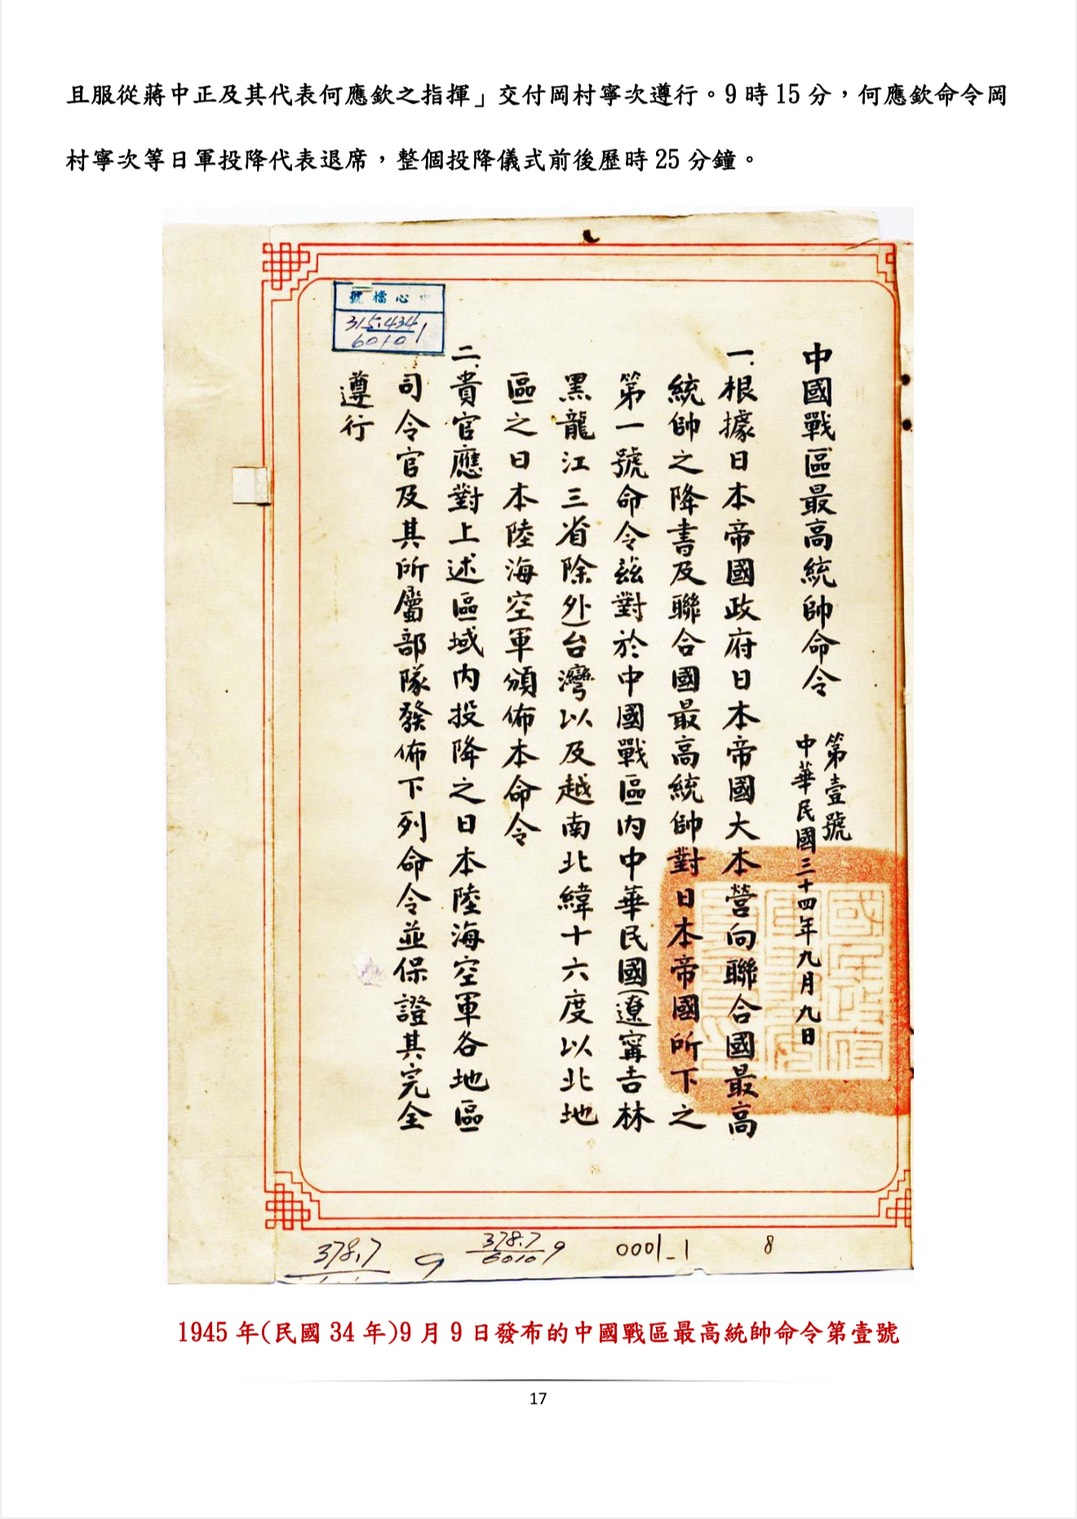 且服從蔣中正及其代表何應欽之指揮」交付岡村寧次遵行。9 時 15 分，何應欽命令岡
村寧次等日軍投降代表退席，整個投降儀式前後歷時 25 分鐘。
中國戰區最高統帥命令
第壹號
中華民國三十四年九月九日
一、根據日本帝國政府日本帝國大本營向聯合國最高
統帥之降書及聯合國最高統帥對日本帝國所下之
第一號命令茲對於中國戰區內中華民國(遼寧吉林
黑龍江三省除外)台灣以及越南北緯十六度以北地
區之日本陸海空軍頒佈本命令
二、貴官應對上述區域內投降之日本陸海空軍各地區
司令官及其所屬部隊發佈下列命令並保證其完全
遵行
心檔號
315.434
6010
1
378.7
9
378.7
6010
9
0001_1
8
1945 年(民國 34 年)9 月 9 日發布的中國戰區最高統帥命令第壹號
17